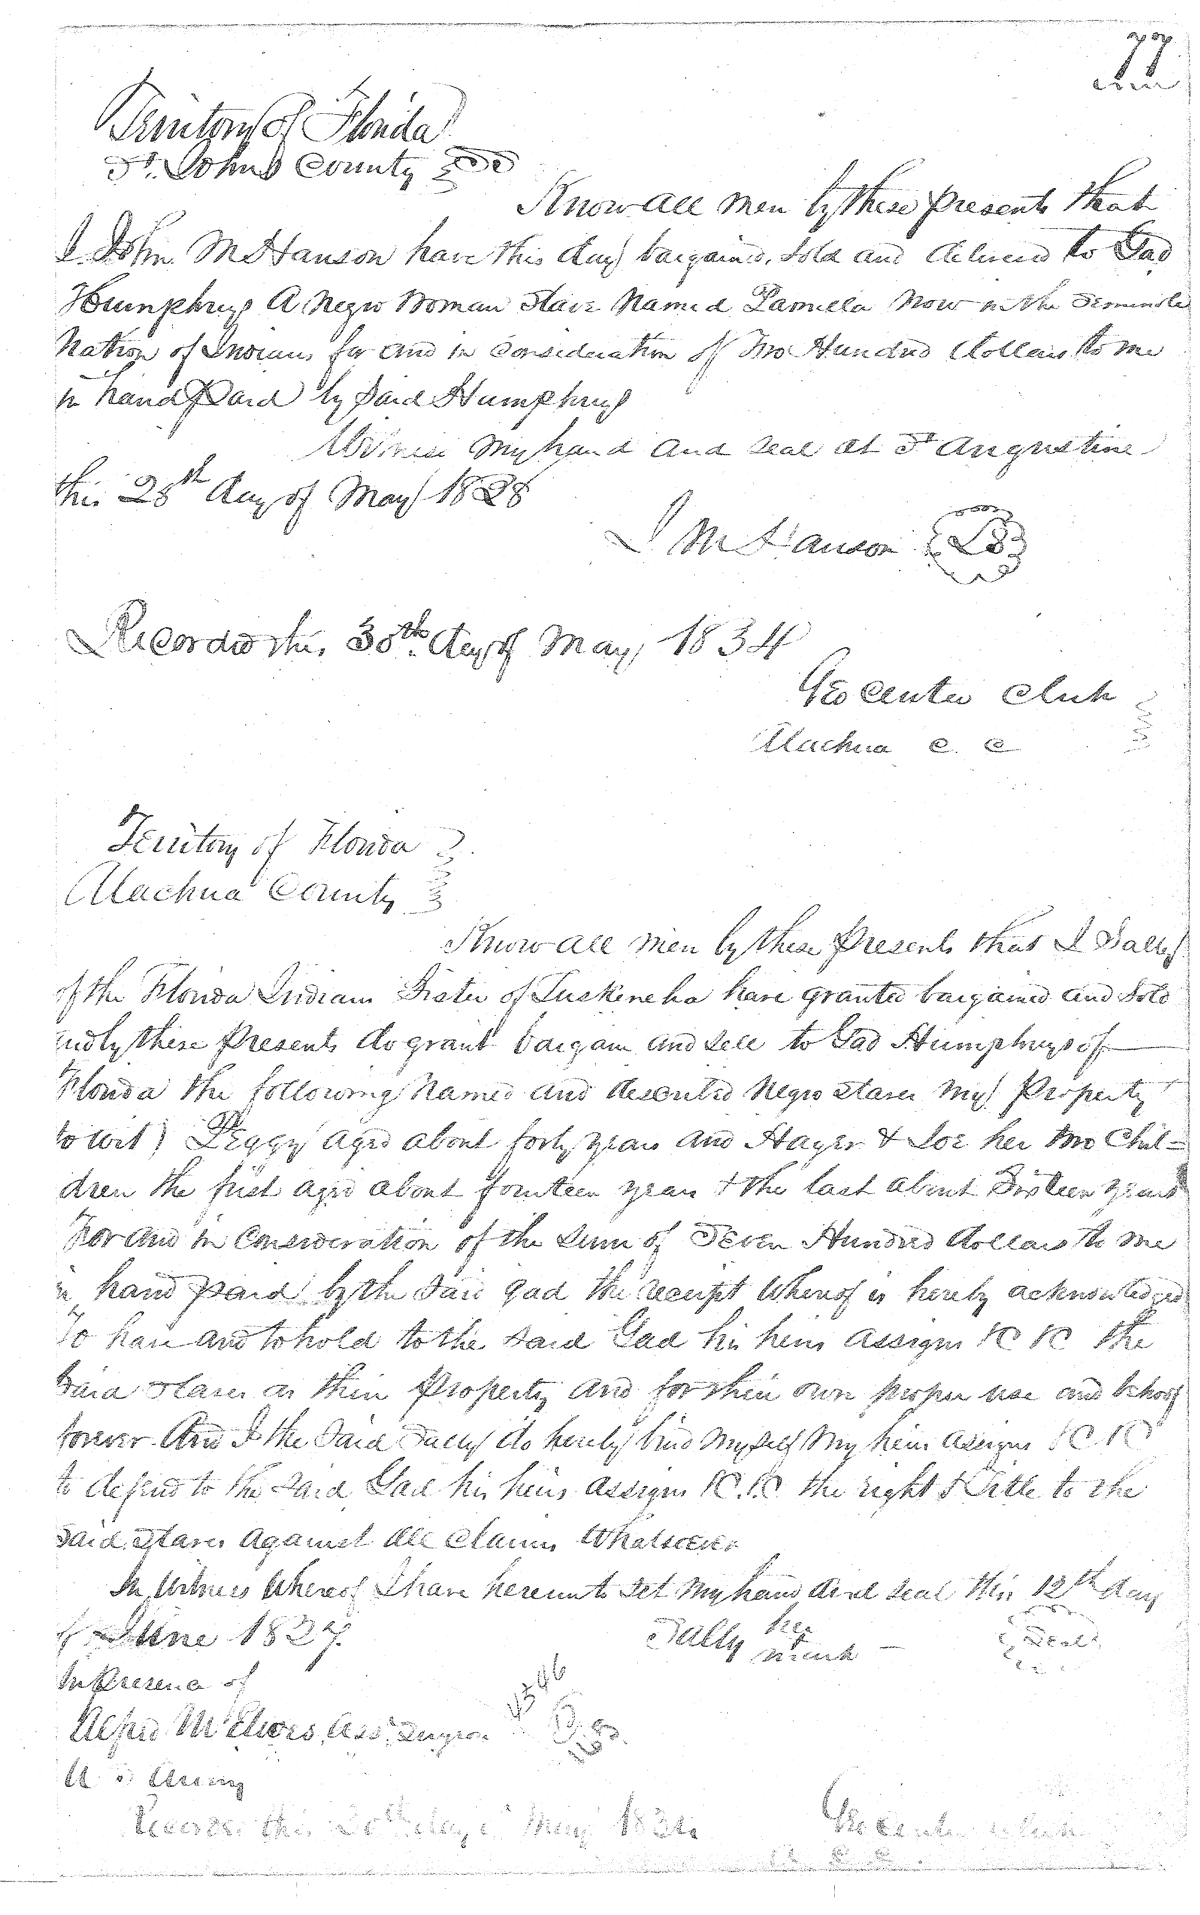 77
Territory of Florida
St. Johns County
Know all men by these presents that
I John M Hanson have this day bargained, sold and delivered to Gad
Humphreys A Negro Woman Slave Named Pamella Now in the Seminole
Nation of Indians for and in consideration of Two Hundred dollars to me
in hand Paid by Said Humphreys
Witness my hand and seal at St Augustine
this 28th day of May 1828
J M Hanson LS
Recorded this 30th day of May 1834
Geo Center Clerk
Alachua C. C
Territory of Florida
Alachua County
Know all men by these Presents that I Sally
of the Florida Indians Sister of Tuskeneha have granted bargained and Sold
and by these Presents do grant bargain and sell to Gad Humphreys of
Florida the following Named and described Negro slaves my Property
to wit) Peggy aged about forty years and & Joe her two Chil=
dren the first aged about fourteen years & the last about Sixteen years
For and in Consideration of the Sum of Seven Hundred dollars to me
in hand paid by the Said gad the receipt Whereof is hereby acknowledged
To have and to hold to the said Gad his heirs assigns &C &C the
Said slaves as their Property and for their own proper use and behoof
forever And I the Said Sally do hereby bind myself my heirs assigns &C &C
to defend to the Said Gad his heirs assigns &C. &C the right & Title to the
Said Slaves against all claims Whatsoever
In Witness Whereof I have hereunto set my hand and seal this 12th day
of June 1827
Sally her mark Seal
In Presence of
Ass. Surgeon
U S Army
Recorded this 30th day of May 1834
Geo Center Clerk